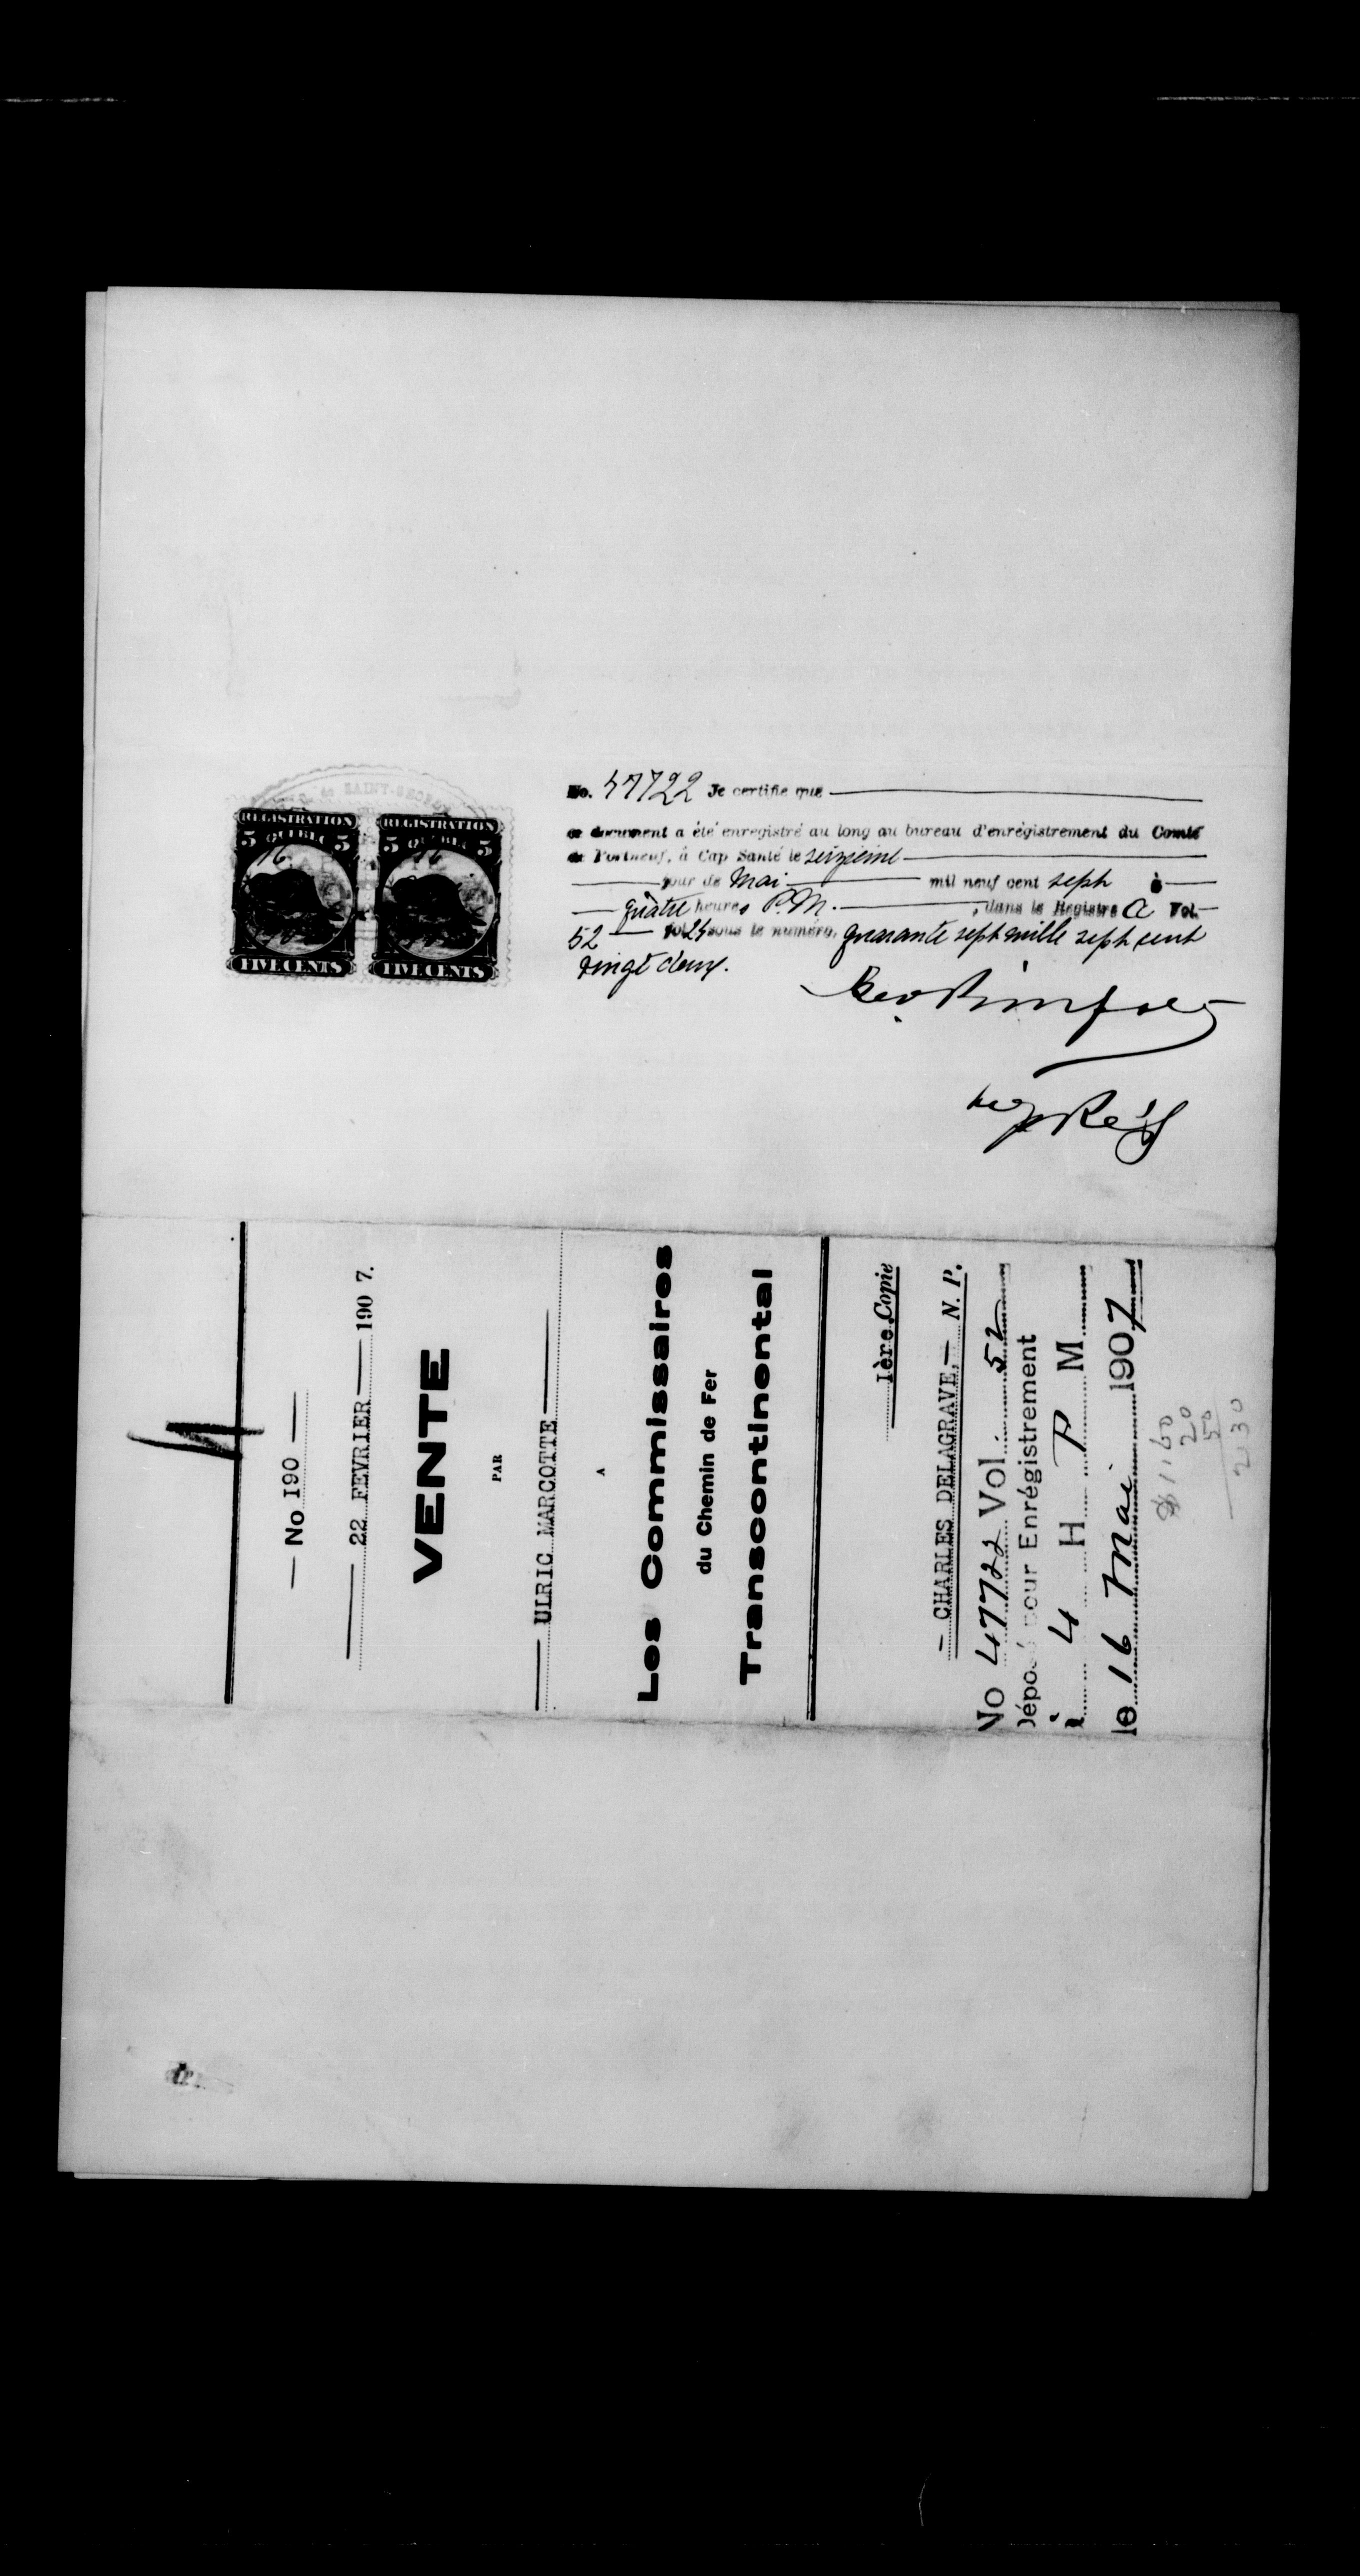 No. 47722 Je certifie que
ce document a été enregistré au long au bureau d'enregistrement du Comté
de Portneuf, à Cap Santé le seizieme
jour de Mai mil neuf cent sept à
quatre heures P.M. , dans le Registre A Vol.
52 fol 24 sous le numéro, quarante sept mille sept cent
vingt deux.
Dep Reg
REGISTRATION
5 QUEBEC 5
16
FIVE CENTS
REGISTRATION
5 QUEBEC 5
16
FIVE CENTS
de SAINT-GEORGE
4
— No 190 —
— 22 FEVRIER — 190 7.
VENTE
PAR
— ULRIC MARCOTTE —
A
Les Commissaires
du Chemin de Fer
Transcontinental
1ère Copie
— CHARLES DELAGRAVE, — N. P.
No 47722 Vol. 52
Déposé pour Enrégistrement
à 4 H P M
le 16 Mai 1907
$1.60
20
50
2 30